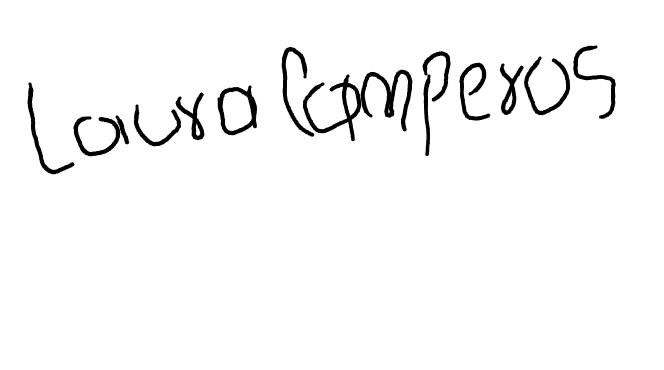 Laura Camperos